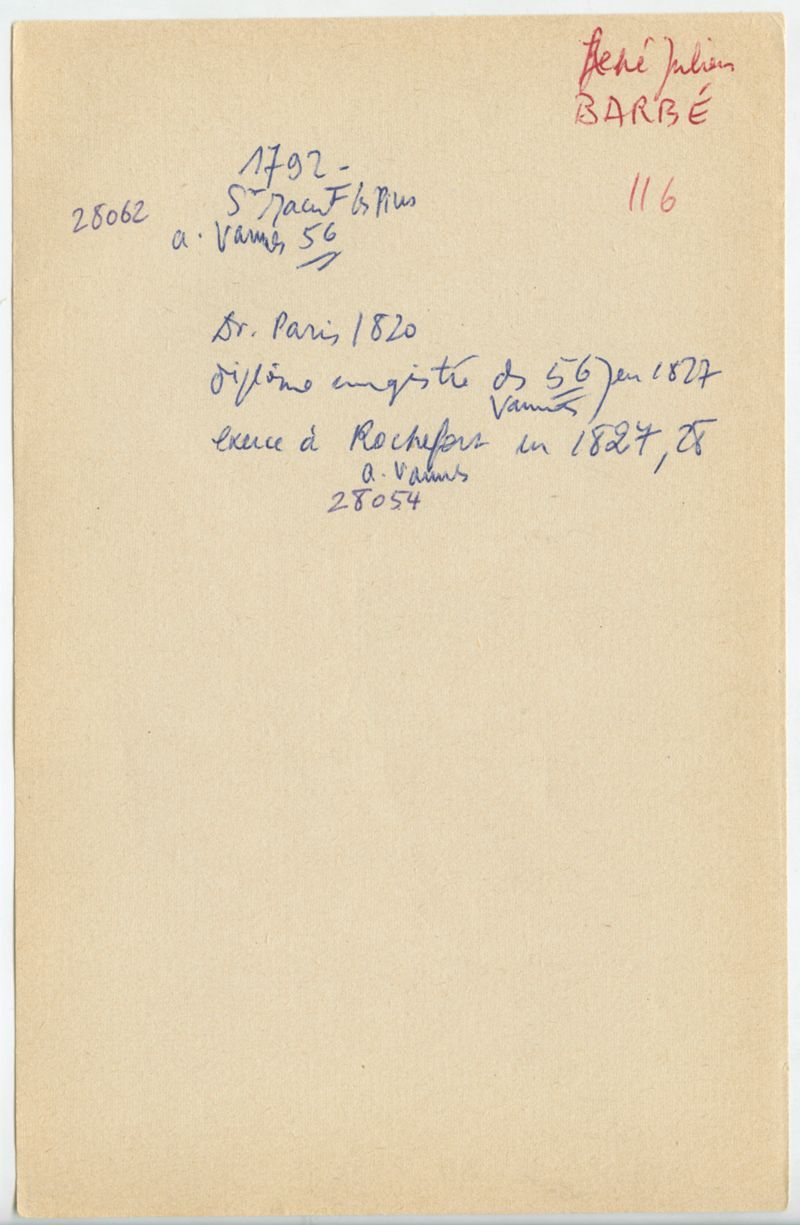 René Julien
BARBÉ
116
1792 -
28062
St Jacut les Pins
a. Vannes 56
Dr. Paris 1820
diplôme enregistré ds 56) en 1827
Vannes
exerce à Rochefort en 1827, 28
a. Vannes
28054